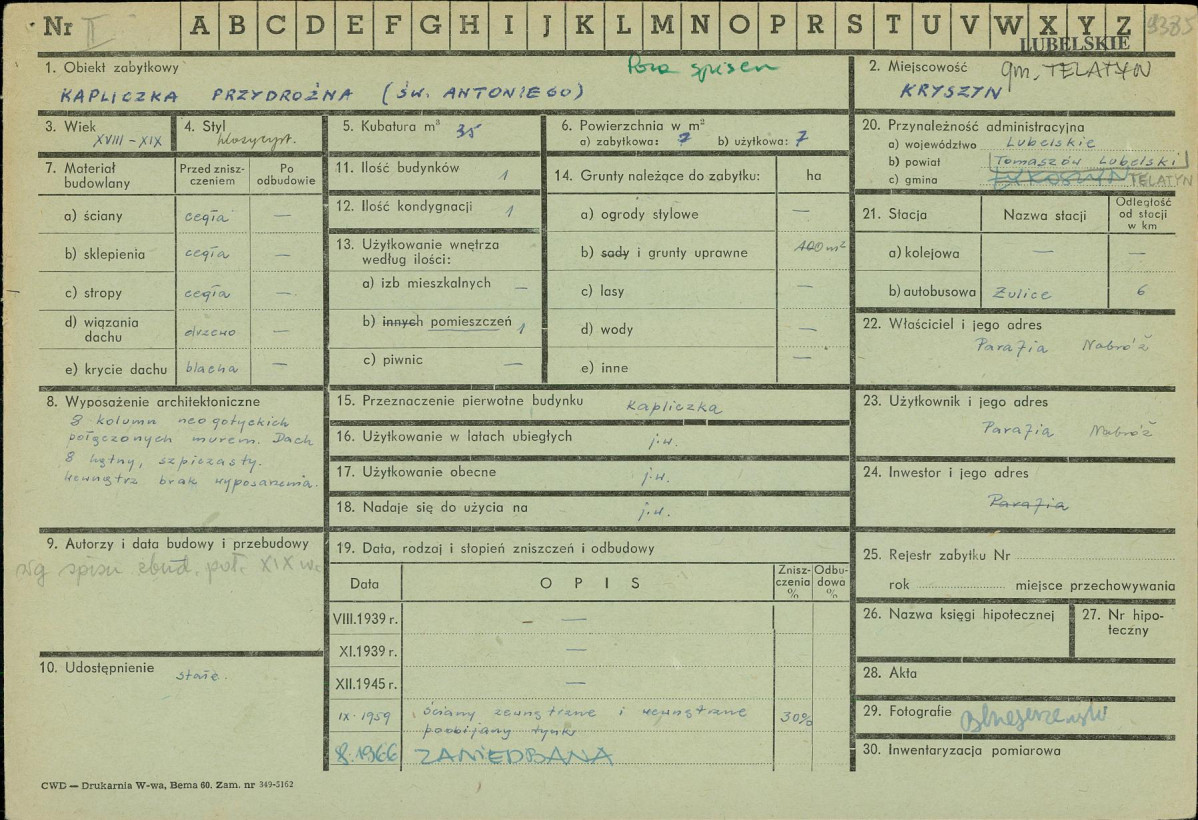 Nr II A B C D E F G H I J K L M N O P R S T U V W X Y Z 9385
LUBELSKIE
1. Obiekt zabytkowy
Poza spisem
KAPLICZKA PRZYDROŻNA (ŚW. ANTONIEGO)
2. Miejscowość gm. TELATYN
KRYSZYN
3. Wiek
XVIII - XIX
4. Styl
klasycyst.
5. Kubatura m³ 35
6. Powierzchnia w m²
a) zabytkowa: 7 b) użytkowa: 7
7. Materiał budowlany
Przed zniszczeniem
Po odbudowie
a) ściany cegła —
b) sklepienia cegła —
c) stropy cegła —
d) wiązania dachu drzewo —
e) krycie dachu blacha —
8. Wyposażenie architektoniczne
8 kolumn neogotyckich
połączonych murem. Dach
8 kątny, szpiczasty.
Wewnątrz brak wyposażenia.
9. Autorzy i data budowy i przebudowy
wg spisu zbud. poł. XIX w.
10. Udostępnienie stałe.
11. Ilość budynków 1
12. Ilość kondygnacji 1
13. Użytkowanie wnętrza
według ilości:
a) izb mieszkalnych —
b) innych pomieszczeń 1
c) piwnic —
14. Grunty należące do zabytku: ha
a) ogrody stylowe —
b) sady i grunty uprawne 100 m²
c) lasy —
d) wody —
e) inne —
15. Przeznaczenie pierwotne budynku kapliczka
16. Użytkowanie w latach ubiegłych j.w.
17. Użytkowanie obecne j.w.
18. Nadaje się do użycia na j.w.
19. Data, rodzaj i stopień zniszczeń i odbudowy
Data
OPIS
Zniszczenia %
Odbudowa %
VIII.1939 r. —
XI.1939 r. —
XII.1945 r. —
IX.1959 ściany zewnętrzne i wewnętrzne 30%
poobijany tynk
8.1966 ZANIEDBANA
20. Przynależność administracyjna
a) województwo Lubelskie
b) powiat Tomaszów Lubelski
c) gmina TELATYN
21. Stacja
Nazwa stacji
Odległość od stacji w km
a) kolejowa — —
b) autobusowa Żulice 6
22. Właściciel i jego adres
Parafia Nabróż
23. Użytkownik i jego adres
Parafia Nabróż
24. Inwestor i jego adres
Parafia
25. Rejestr zabytku Nr
rok miejsce przechowywania
26. Nazwa księgi hipotecznej
27. Nr hipoteczny
28. Akta
29. Fotografie
30. Inwentaryzacja pomiarowa
CWD — Drukarnia W-wa, Bema 60. Zam. nr 349-5162